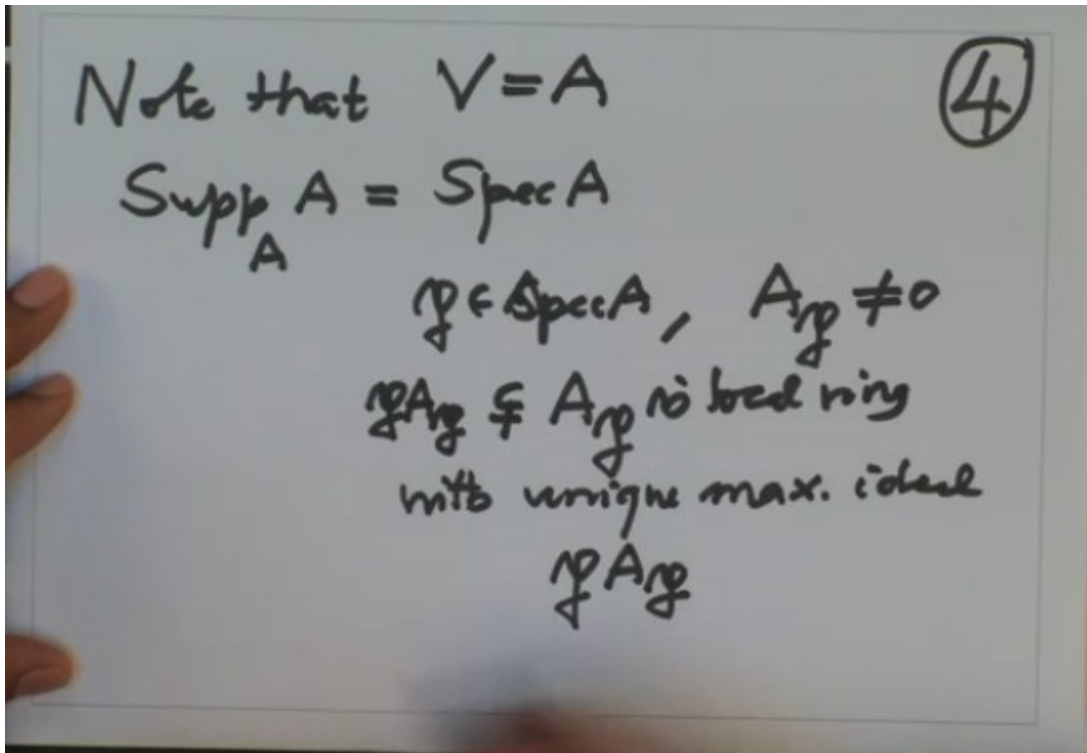 Note that V = A
④
Supp_A A = Spec A
𝔭 ∈ Spec A, A_𝔭 ≠ 0
𝔭A_𝔭 ⊊ A_𝔭 is local ring
with unique max. ideal
𝔭A_𝔭